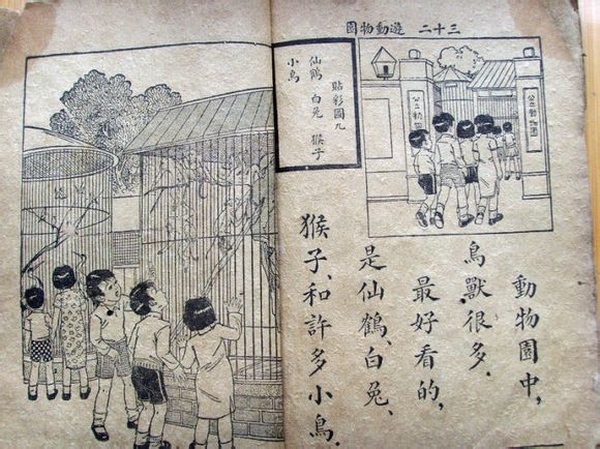 三十二 遊動物園
公立動物園
公立動
貼彩圖九
仙鶴 白兔 猴子
小鳥
動物園中，
鳥獸很多．
最好看的，
是仙鶴、白兔、
猴子、和許多小鳥．